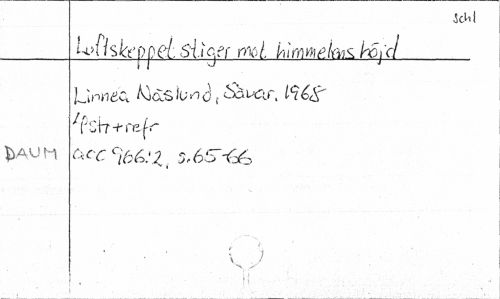 Schl
Luftskeppet stiger mot himmelens höjd
Linnea Näslund, Sävar, 1968
4 str + refr
DAUM acc 966:2, s. 65-66